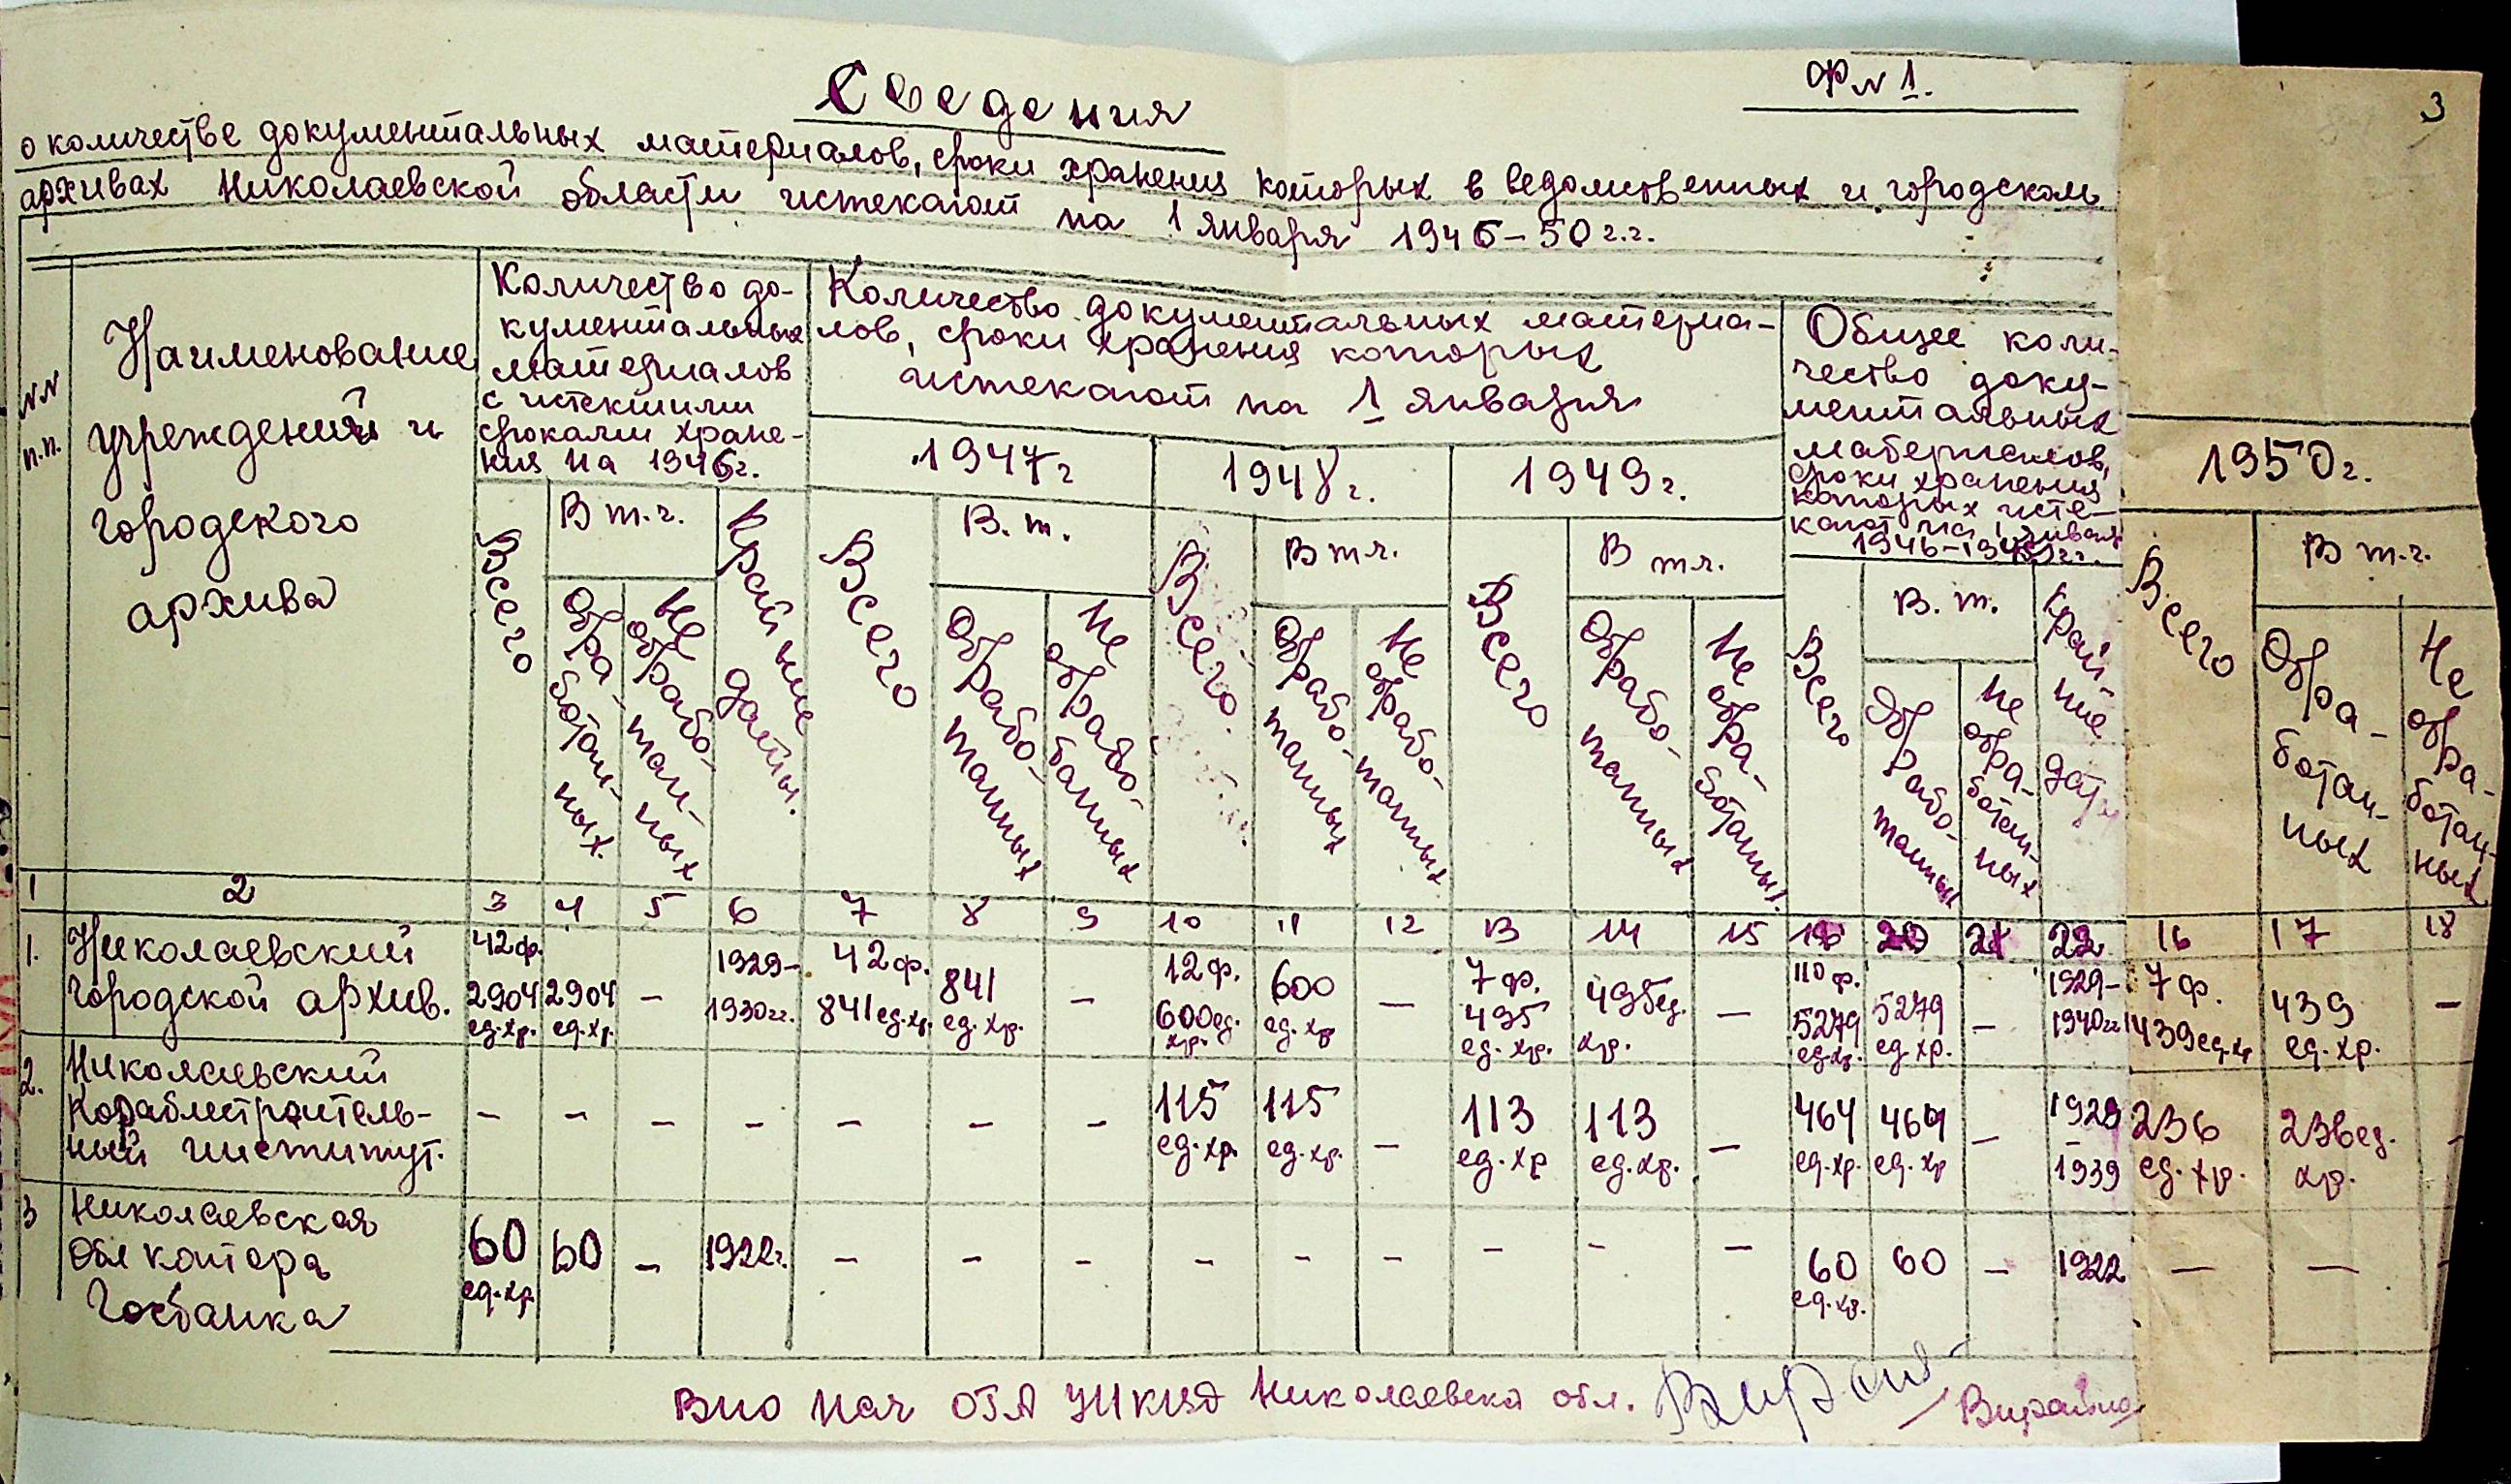 Ф N 1.
3
Сведения
о количестве документальных материалов, сроки хранения которых в ведомственных и городском
архивах Николаевской области истекают на 1 января 1946-50 г.г.
NN
п.п.
Наименование
учреждений и
городского
архива
Количество до-
кументальных
материалов
с истекшими
сроками хране-
ния на 1946г.
Всего
В т.ч.
Обра-
ботан-
ных.
Не
обрабо-
тан-
ных
Крайние
даты.
Количество документальных материа-
лов, сроки хранения которых
истекают на 1 января
1947г
Всего
В. т.
Обрабо-
танных
Не
обрабо-
танных
1948г.
Всего
В т.ч.
Обрабо-
танных
Не
обрабо-
танных
1949г.
Всего
В т.ч.
Обрабо-
танных
Не
обра-
ботанных
Общее коли-
чество доку-
ментальных
материалов,
сроки хранения
которых исте-
кают на 1 января
Всего
В. т.
Обрабо-
танных
Не
обра-
ботан-
ных
Край-
ние
даты
1950г.
Всего
В т.ч.
Обра-
ботан-
ных
Не
обра-
ботан-
ных
1 2 3 4 5 6 7 8 9 10 11 12 13 14 15 20 21 22 16 17 18
1.
Николаевский
городской архив.
42ф.
2904
ед.хр.
2904
ед.хр.
-
1929-
1930гг.
42ф.
841ед.хр.
841
ед. хр.
-
12ф.
600ед.
хр.
600
ед. хр
-
7ф.
495
ед. хр.
495ед.
хр.
-
110ф.
5279
ед.хр.
5279
ед хр.
-
1929-
1940гг
7ф.
439ед.хр
439
ед.хр.
-
2.
Николаевский
Кораблестроитель-
ный институт.
-
-
-
-
-
-
-
115
ед.хр.
115
ед.хр.
-
113
ед.хр
113
ед.хр.
-
464
ед.хр.
464
ед.хр
-
1929
-
1939
236
ед.хр.
236ед.
хр.
-
3
Николаевская
Обл контора
Госбанка
60
ед.хр.
60
-
1922г.
-
-
-
-
-
-
-
-
-
60
ед.хр.
60
-
1922
-
-
-
Вио Нач ОГА УНКВД Николаевской обл.